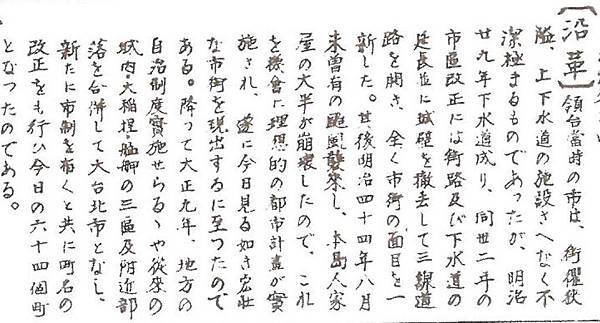 〔沿革〕領台當時の市は、街衢狹
隘、上下水道の施設さへなく不
潔極まるものであつたが、明治
廿九年下水道成り、同卅二年の
市區改正には街路及び下水道の
延長並に城壁を撤去して三線道
路を開き、全く市街の面目を一
新した。其後明治四十四年八月
未曽有の颱風襲來し、本島人家
屋の大半が崩壊したので、これ
を機會に理想的の都市計畫が實
施され、遂に今日見る如き宏壮
な市街を現出するに至つたので
ある。降つて大正九年、地方の
自治制度實施せらるゝや從來の
城内・大稲埕・艋舺の三區及附近部
落を合併して大台北市となし、
新たに市制を布くと共に町名の
改正をも行ひ今日の六十四個町
となつたのである。